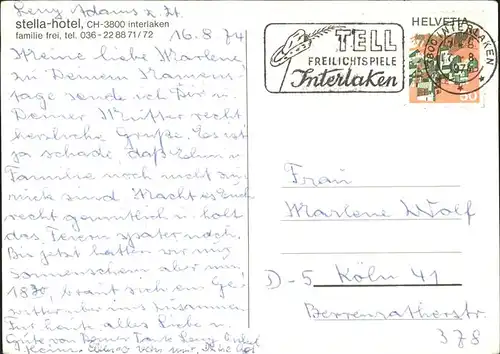 Leny Adams z. Zt.
stella-hotel, CH-3800 interlaken
familie frei, tel. 036 - 22 88 71/72
16. 8. 74
Meine liebe Marlene,
zu Deinem Namens-
tage sende ich Dir u.
Deiner Mutter recht
herzliche Grüße. Es ist
ja schade, daß
Familie noch nicht zu-
rück sind. Macht es Euch
recht gemütlich u. holt
das Feiern später nach.
Bis jetzt hatten wir nur
Sonnenschein aber nun,
18 30, braut sich ein Ge-
witter über uns zusammen.
Für heute alles Liebe u.
Gute von Deiner Tante Leny
TELL
FREILICHTSPIELE
Interlaken
HELVETIA
3800 INTERLAKEN
Frau
Marlene Wolf
D-5 Köln 41
Berrenratherstr
378